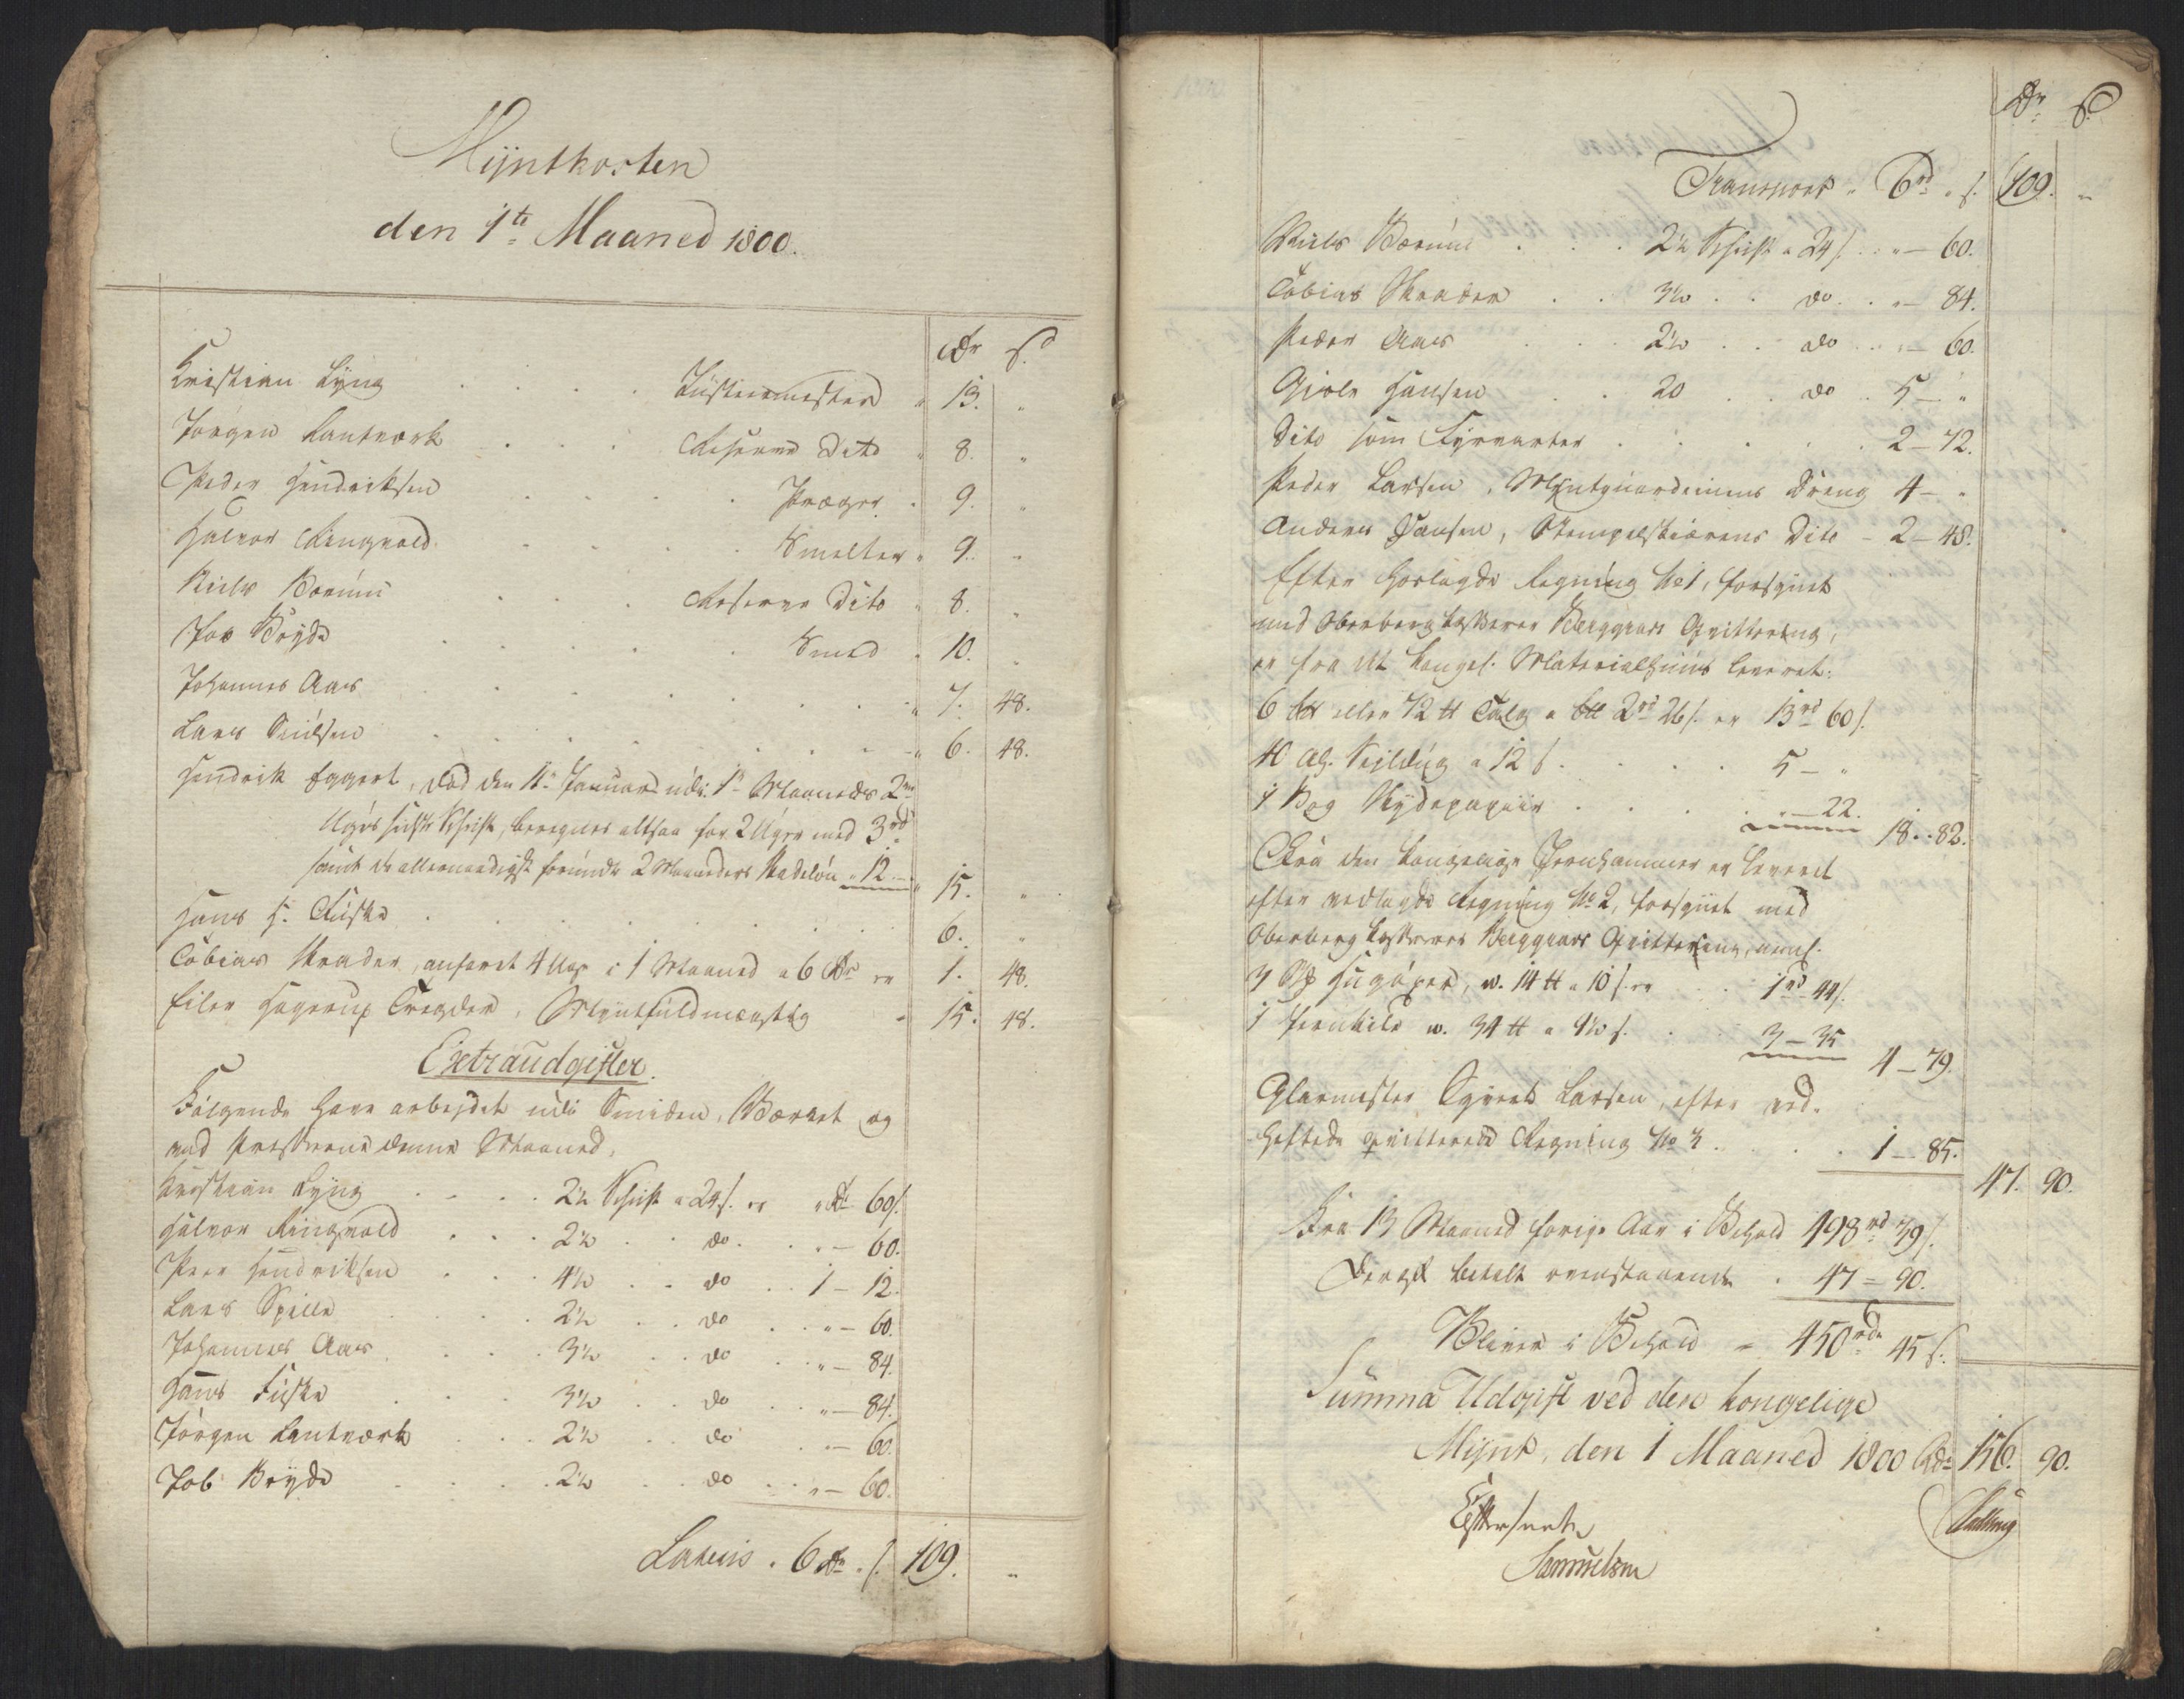 Myntkosten
den 1te Maaned 1800.
Rdr s.
Kristian Lyng . . . . Justeermester " 13. "
Jørgen Lantværk . . . Reserve Dito " 8. "
Peder Hendriksen . . . . Præger " 9. "
Halvor Ringvold . . . . Smelter " 9. "
Niels Bærum . . . Reserve Dito " 8. "
Job Bryde . . . . . Smed " 10. "
Johannes Aas . . . . . . " 7. 48.
Lars Nielsen . . . . . . " 6. 48.
Hendrik Eggert, død den 11te Januar udi 1te Maaneds 2den
Uges sidste Schift, beregnes altsaa for 2 Uger med 3rd
samt de allernaadigst forundte 2 Maaneders Naadeløn " 12 – " 15. "
Hans H. Fiske . . . . . . . 6. "
Tobias Skrader, anført 4 Uger i 1 Maaned a 6 Rdr er 1. 48.
Eiler Hagerup Tregder, Myntfuldmægtig " 15. 48.
Extraudgifter.
Følgende have arbejdet udi Smidien, Værket og
ved Presserne denne Maaned,
Kristian Lyng . . . . 2½ Schift a 24 s. er " Rd 60 s.
Halvor Ringvold . . . 2½ . . do . . " – 60.
Peer Hendriksen . . . 4½ . . do . . 1 – 12.
Lars Spille . . . . 2½ . . do . . " – 60.
Johannes Aas . . . . 3½ . . do . . " – 84.
Hans Fiske . . . 3½ . . do . . " – 84.
Jørgen Lantværk . . . 2½ . . do . . – 60.
Job Bryde . . . . 2½ . . do . . " – 60.
Lateris . 6 Rdr . s. 109. "
Rdr s.
Transport " 6rd " s. 109. "
Niels Bærum . . . 2½ Schift a 24 s. . " – 60.
Tobias Skrader . . 3½ . . do . . " – 84.
Peder Aas . . . 2½ . . do . . " – 60.
Giole Hansen . . 20 . . do . 5 – "
Dito som Fyrvarter . . . . . 2 – 72.
Peder Larsen, Myntguardeinens Dreng 4 – "
Anders Jansen, Stempelskiærens Dito – 2 – 48.
Efter hoslagde Regning No 1, forsynet
med Oberberg Berggrav Qvittering,
er fra det kongel. Materialhuus leveret:
6 eller 72 ℔ Talg a 2rd 26 s. er 13rd 60 s.
40 Al. Sejldug a 12 s. . . . . 5 – "
1 Bog Skydepapiir . . . . " – 22. 18. 82.
Fra den kongelige Jernhammer er leveret
efter vedlagde Regning No 2, forsynet med
Oberberg Berggravs Qvittering,
3 w. 14 ℔ a 10 s. er . . 1rd 44 s.
1 w. 34 ℔ a 9½ s. . . 3 – 35 4 – 79.
Glarmester Sjverts Larsen, efter ved-
heftede qvitterede Regning No 3 . . . . 1 – 85.
47. 90.
Fra 13 Maaned forige Aar i Behold 498rd 39 s.
Deraf betalt ovenstaaende . 47 – 90.
Bliver i Behold – 450rdr 45 s.
Summa Udgift ved den kongelige
Mynt, den 1 Maaned 1800 Rdr 156. 90.
Samuelsen